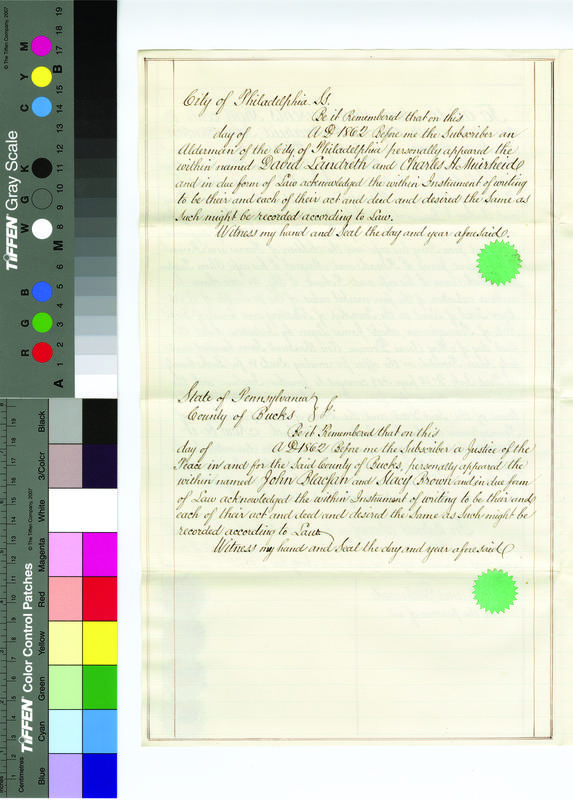 City of Philadelphia SS.
Be it Remembered that on this
day of A D 1862 Before me the Subscriber an
Alderman of the City of Philadelphia personally appeared the
within named David Landreth and Charles H Muirheid
and in due form of Law acknowledged the within Instrument of writing
to be their and each of their act and deed and desired the Same as
Such might be recorded according to Law.
Witness my hand and Seal the day and year aforesaid.
State of Pennsylvania
County of Bucks SS.
Be it Remembered that on this
day of A D 1862 Before me the Subscriber a Justice of the
Peace in and for the Said County of Bucks, personally appeared the
within named John Blackfan and Stacy Brown and in due form
of Law acknowledged the within Instrument of writing to be their and
each of their act and deed and desired the Same as Such might be
recorded according to Law
Witness my hand and Seal the day and year aforesaid
TIFFEN Gray Scale
© The Tiffen Company, 2007
R G B W G K C Y M
A 1 2 3 4 5 6 M 8 9 10 11 12 13 14 15 B 17 18 19
TIFFEN Color Control Patches
© The Tiffen Company, 2007
Centimetres
Inches
Blue Cyan Green Yellow Red Magenta White 3/Color Black